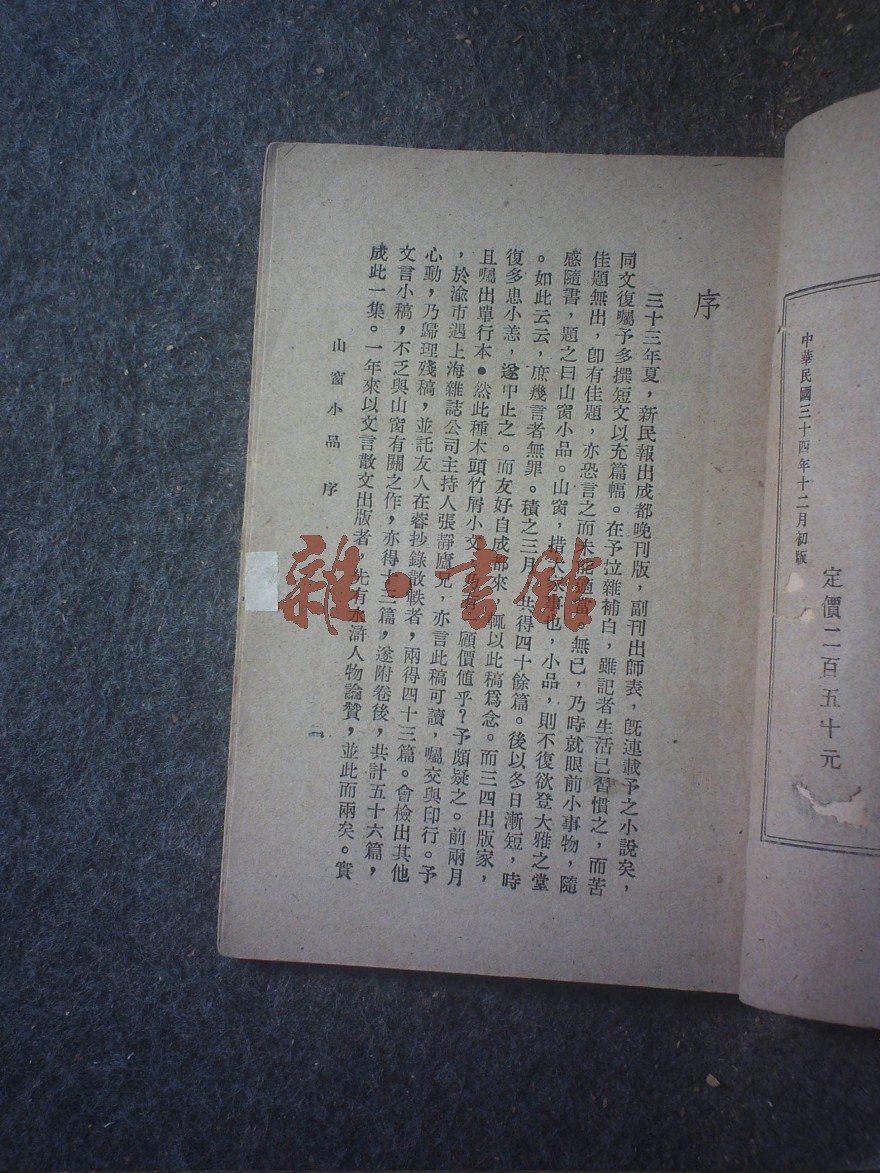 中華民國三十四年十二月初版
定價二百五十元
序
三十三年夏，新民報出成都晚刊版，副刊出師表，旣連載予之小說矣，
同文復囑予多撰短文以充篇幅。在予拉雜補白，雖記者生活已習慣之，而苦
佳題無出，卽有佳題，亦恐言之而未能適當。無已，乃時就眼前小事物，隨
感隨書，題之曰山窗小品。山窗，措大家事也，小品，則不復欲登大雅之堂
。如此云云，庶幾言者無罪。積之三月，共得四十餘篇。後以冬日漸短，時
復多患小恙，遂中止之。而友好自成都來，輒以此稿爲念。而三四出版家，
且囑出單行本。然此種木頭竹屑小文，有一顧價値乎？予頗疑之。前兩月
，於渝市遇上海雜誌公司主持人張靜廬兄，亦言此稿可讀，囑交與印行。予
心動，乃歸理殘稿，並託友人在蓉抄錄散軼者，兩得四十三篇。會檢出其他
文言小稿，不乏與山窗有關之作，亦得十三篇，遂附卷後，共計五十六篇，
成此一集。一年來以文言散文出版者，先有水滸人物論贊，並此而兩矣。實
山窗小品 序
雜·書館